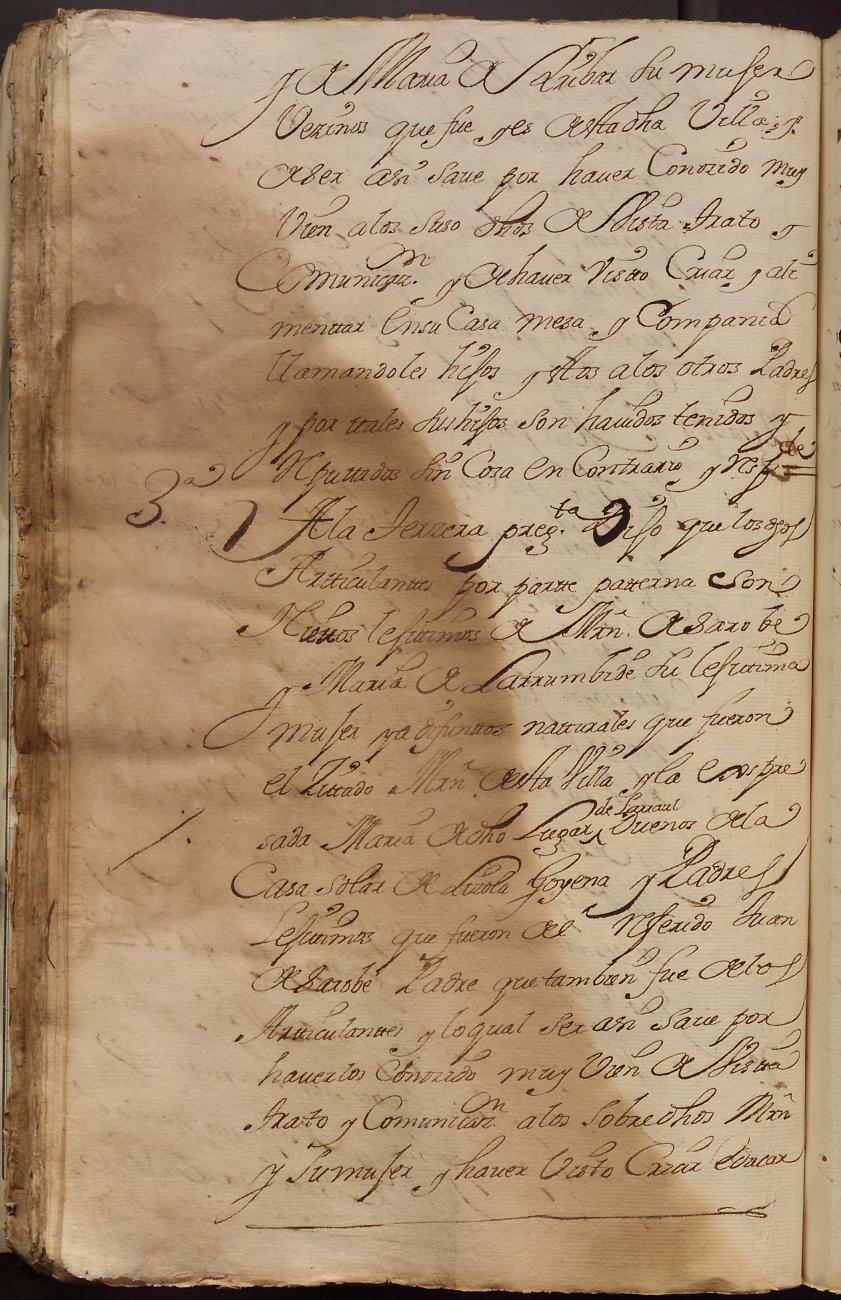 y de Maria de Lribar su muger
Vezinos que fue yes destadha Villa, y
de ser asi save por haver Conozido muy
Vien alos suso dhos de Vista trato y
Comunicazn. y de haver Visto Criar y ali
menttar Ensu Casa mesa y Compania
llamandoles hijos y estos alos otros Padres
y por ttales sus hijos son havidos tenidos y
Reputtados sin Cosa en Contrario y Resp.de
3.a A la terzera preg.ta Dijo que los dhos
Artticulanttes por partte patterna son
Niettos lejittimos de Mrn. de Sarobe
y Maria de Larrumbide su lejittima
muger ya difunttos natturales que fueron
el Zittado Mrn destta Villa y la Exspre
sada Maria de dho Lugar de Larraul Duenos dela
Casa solar de Lizola Goyena y Padres
Lejittimos que fueron del Referido Juan
de Sarobe Padre que tambien fue delos
Artticulanttes y loqual ser asi save por
haverlos Conozido muy Vien de Vistta
trato y Comunicazn. alos sobredhos Mrn
y sumuger y haver Visto Criar educar